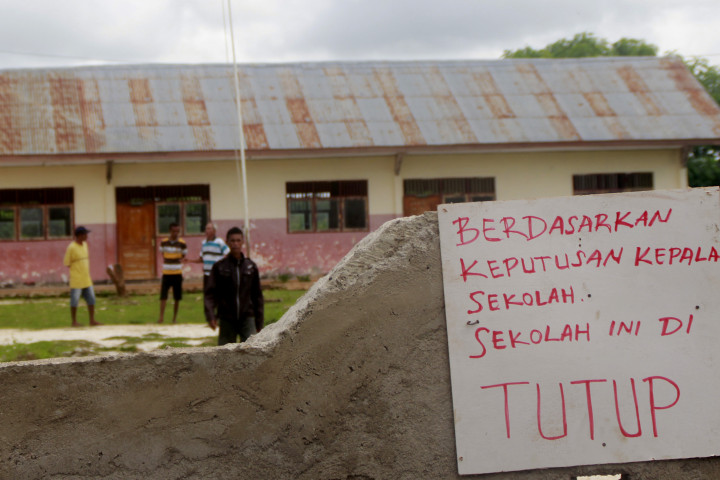 BERDASARKAN
KEPUTUSAN KEPALA
SEKOLAH.
SEKOLAH INI DI
TUTUP